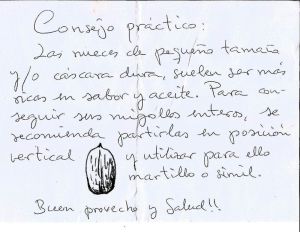 Consejo práctico:
Las nueces de pequeño tamaño
y/o cáscara dura, suelen ser más
ricas en sabor y aceite. Para con-
seguir sus migollos enteros, se
recomienda partirlas en posición
vertical y utilizar para ello
martillo o simil.
Buen provecho y Salud!!